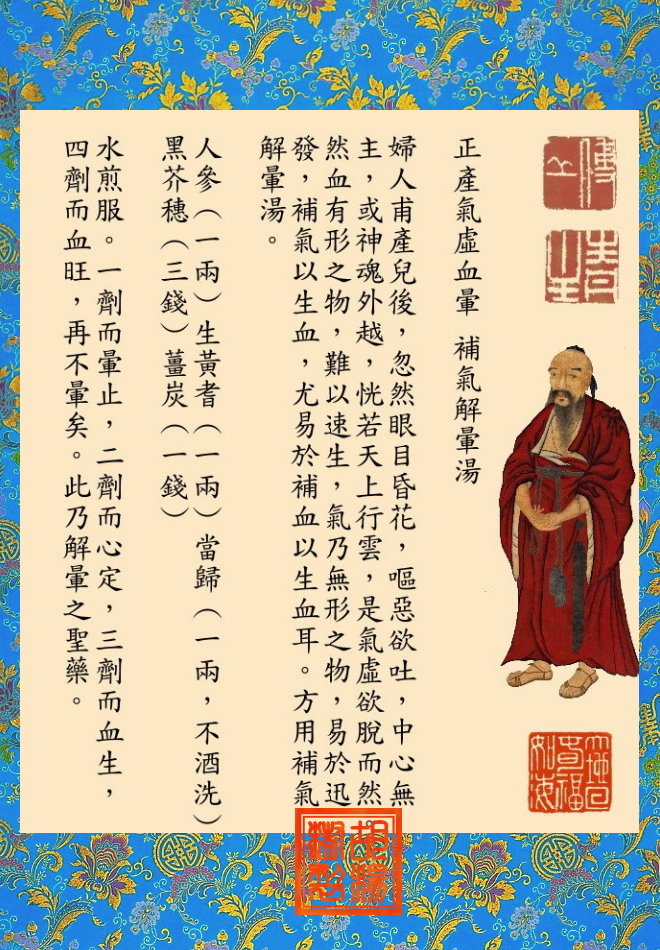 傅山
正產氣虛血暈 補氣解暈湯
婦人甫產兒後，忽然眼目昏花，嘔惡欲吐，中心無
主，或神魂外越，恍若天上行雲，是氣虛欲脫而然。
然血有形之物，難以速生，氣乃無形之物，易於迅
發，補氣以生血，尤易於補血以生血耳。方用補氣
解暈湯。
人參（一兩）生黃耆（一兩）當歸（一兩，不酒洗）
黑芥穗（三錢）薑炭（一錢）
水煎服。一劑而暈止，二劑而心定，三劑而血生，
四劑而血旺，再不暈矣。此乃解暈之聖藥。